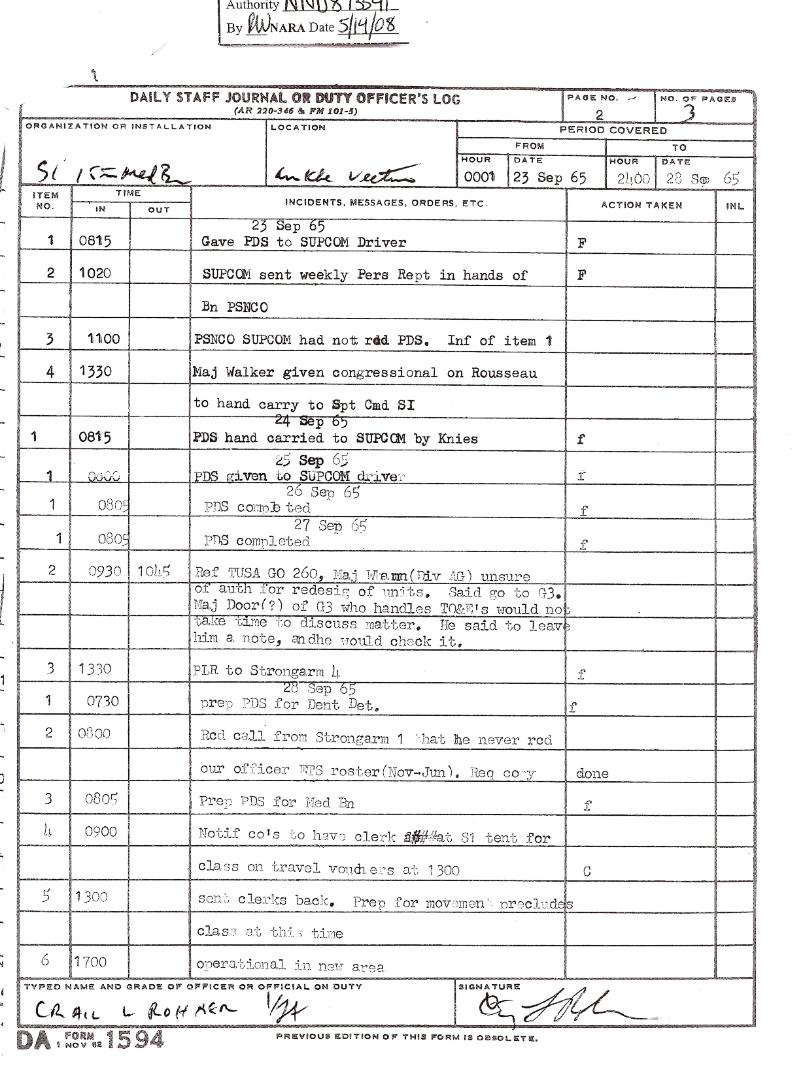 Authority NND873541
By RW NARA Date 5/14/08
1
DAILY STAFF JOURNAL OR DUTY OFFICER'S LOG
(AR 220-346 & FM 101-5)
PAGE NO.
2
NO. OF PAGES
3
ORGANIZATION OR INSTALLATION
S1 15th Med Bn
LOCATION
An Khe
PERIOD COVERED
FROM
TO
HOUR
0001
DATE
23 Sep 65
HOUR
2400
DATE
28 Sep 65
ITEM NO.
TIME
IN
OUT
INCIDENTS, MESSAGES, ORDERS, ETC.
ACTION TAKEN
INL
23 Sep 65
1 0815 Gave PDS to SUPCOM Driver F
2 1020 SUPCOM sent weekly Pers Rept in hands of F
Bn PSNCO
3 1100 PSNCO SUPCOM had not rdd PDS. Inf of item 1
4 1330 Maj Walker given congressional on Rousseau
to hand carry to Spt Cmd SI
24 Sep 65
1 0815 PDS hand carried to SUPCOM by Knies f
25 Sep 65
1 0800 PDS given to SUPCOM driver f
26 Sep 65
1 0805 PDS compl ted f
27 Sep 65
1 0805 PDS completed f
2 0930 1045 Ref TUSA GO 260, Maj (Div AG) unsure
of auth for redesig of units. Said go to G3.
Maj Door(?) of G3 who handles TO&E's would not
take time to discuss matter. He said to leave
him a note, andhe would check it.
3 1330 PLR to Strongarm 4 f
28 Sep 65
1 0730 prep PDS for Dent Det. f
2 0800 Rcd call from Strongarm 1 that he never rcd
our officer ETS roster(Nov-Jun). Req copy done
3 0805 Prep PDS for Med Bn f
4 0900 Notif co's to have clerk at S1 tent for
class on travel vouchers at 1300 C
5 1300 sent clerks back. Prep for movement precludes
class at this time
6 1700 operational in new area
TYPED NAME AND GRADE OF OFFICER OR OFFICIAL ON DUTY
CRAIL L ROHMER 1/Lt
SIGNATURE
DA FORM 1 NOV 62 1594
PREVIOUS EDITION OF THIS FORM IS OBSOLETE.